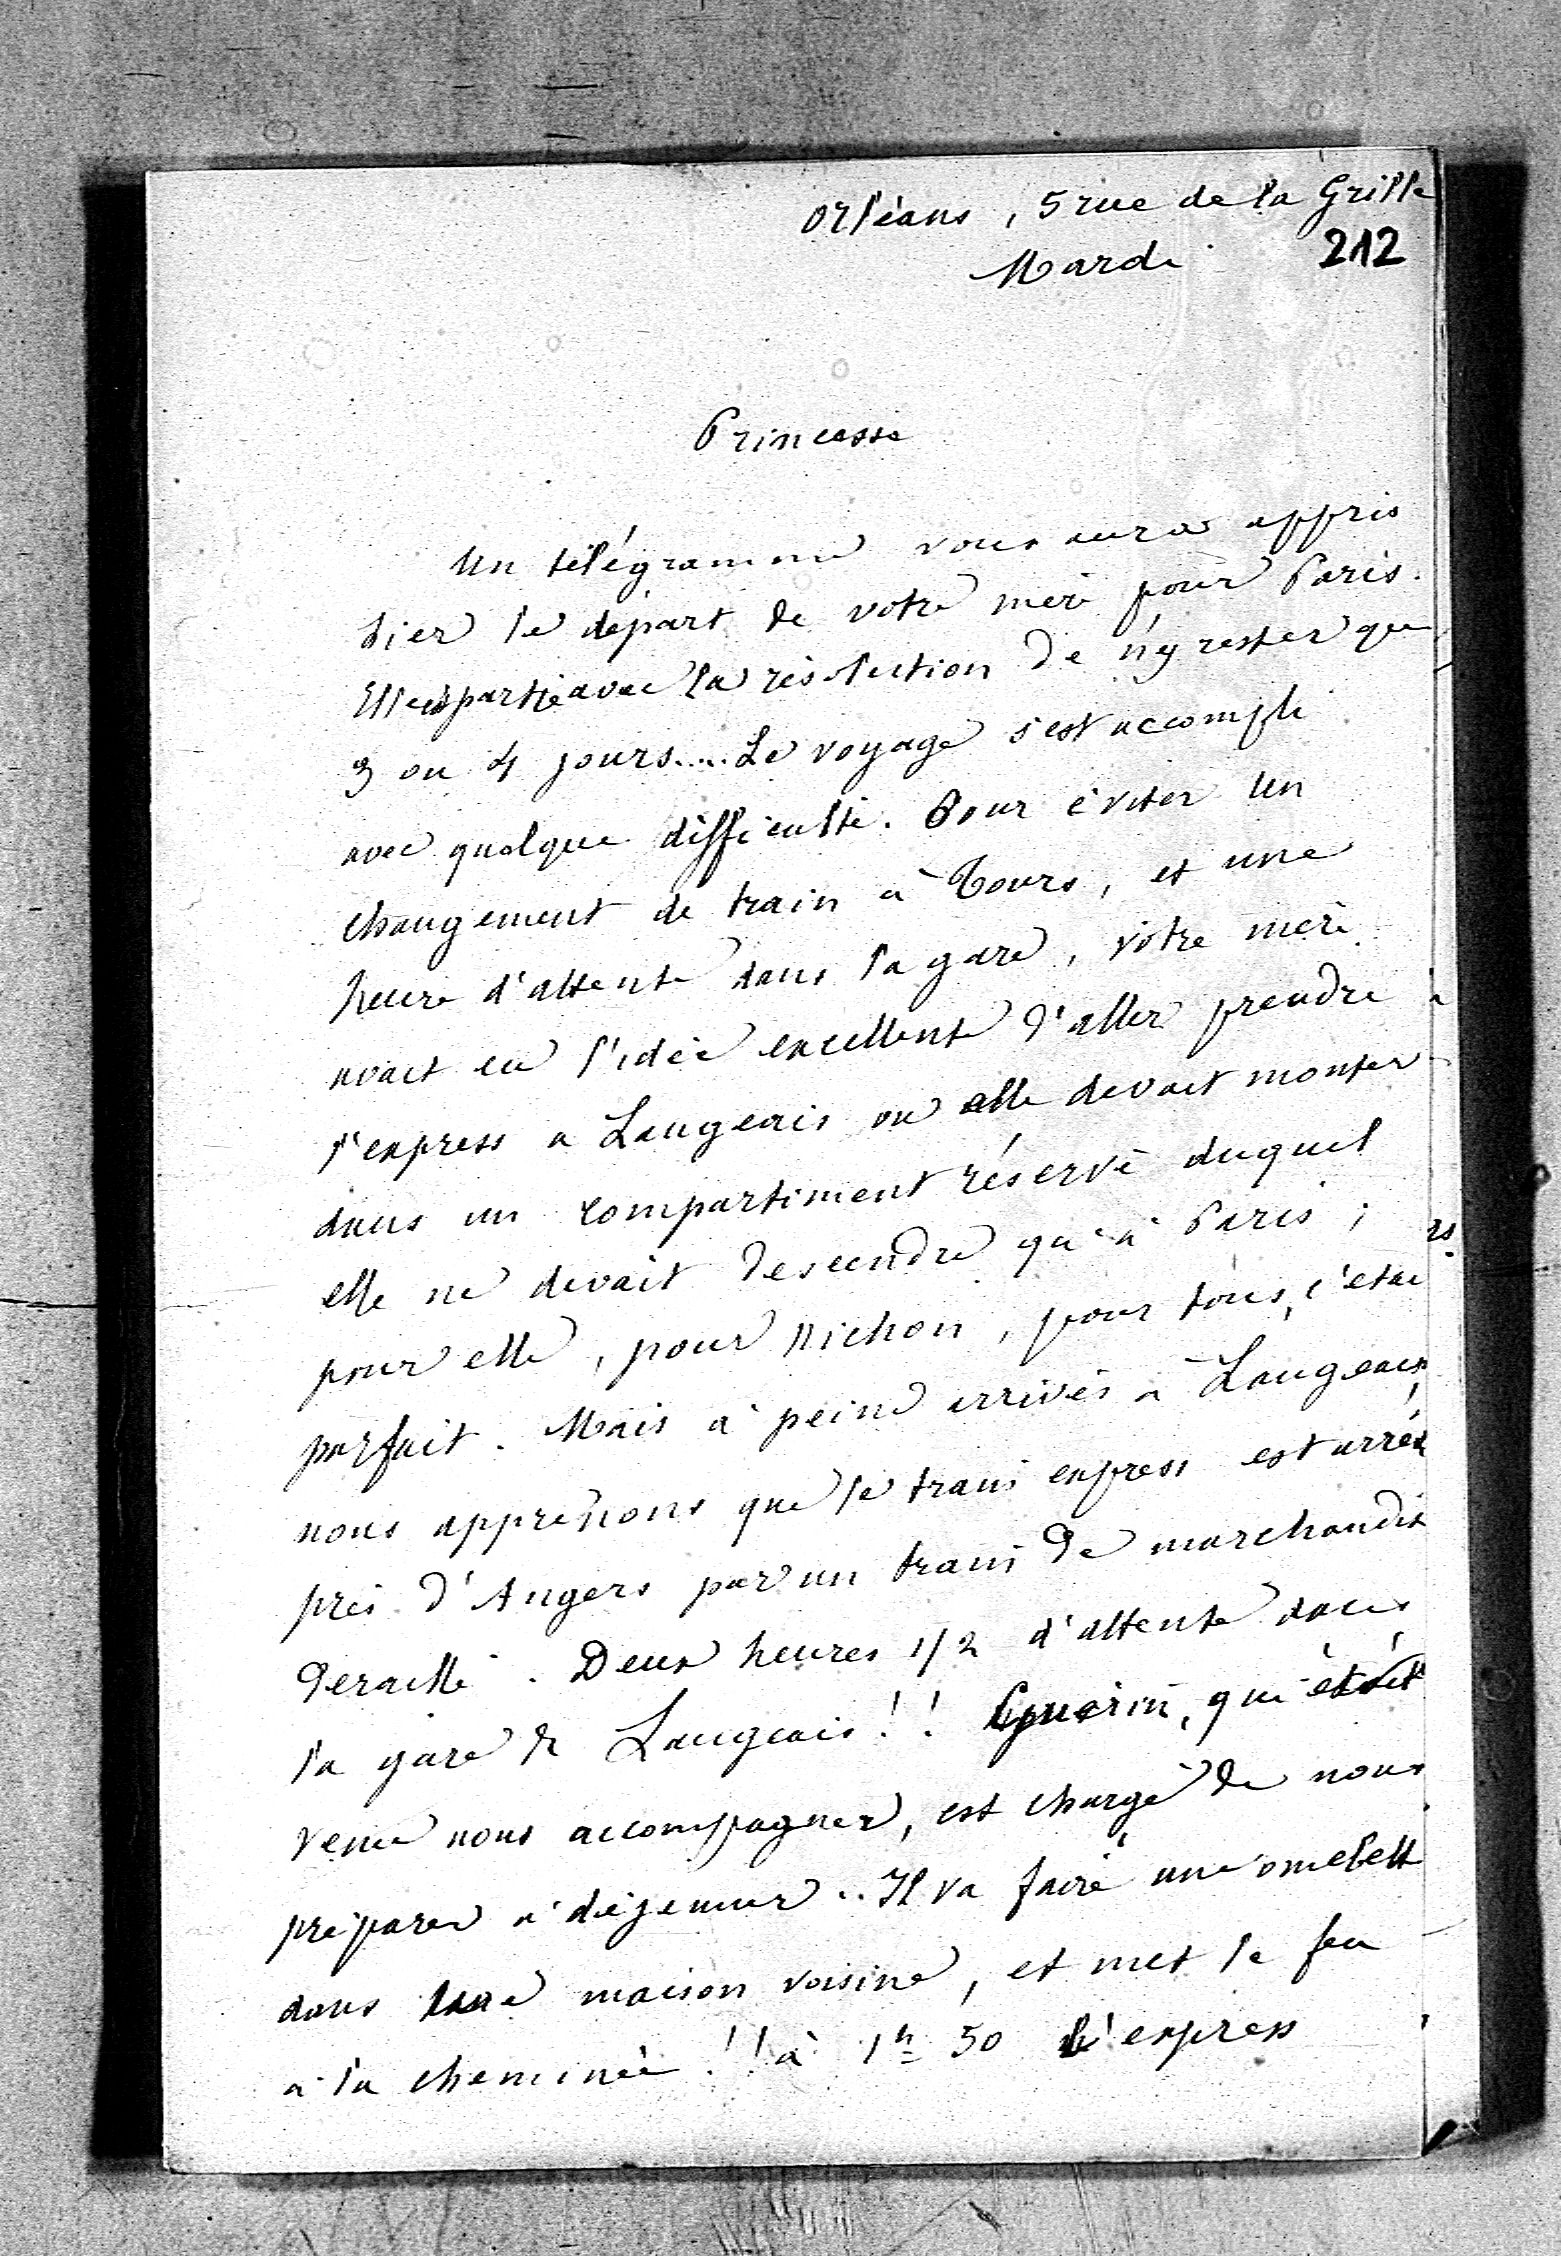 Orléans, 5 rue de la Grille
Mardi 212
Princesse
Un télégramme vous aura appris
hier le départ de votre mère pour Paris.
Elle est partie avec la résolution de n'y rester que
3 ou 4 jours.... Le voyage s'est accompli
avec quelque difficulté. Pour éviter un
changement de train à Tours, et une
heure d'attente dans la gare, votre mère
avait eu l'idée excellente d'aller prendre
l'express a Langeais où elle devait monter
dans un compartiment réservé duquel
elle ne devait descendre qu'à Paris ;
pour elle, pour Nichon, pour tous, c'etai
parfait. Mais à peine arrivés à Langeais
nous apprenons que le train express est arrêt
près d'Angers par un train de marchandis
deraillé. Deux heures 1/2 d'attente dans
la gare de Langeais !! Guérin, qui était
venu nous accompagner, est chargé de nous
préparer à déjeuner.. Il va faire une omelett
dans une maison voisine, et met le feu
à la cheminée !! à 1h 50 l'express